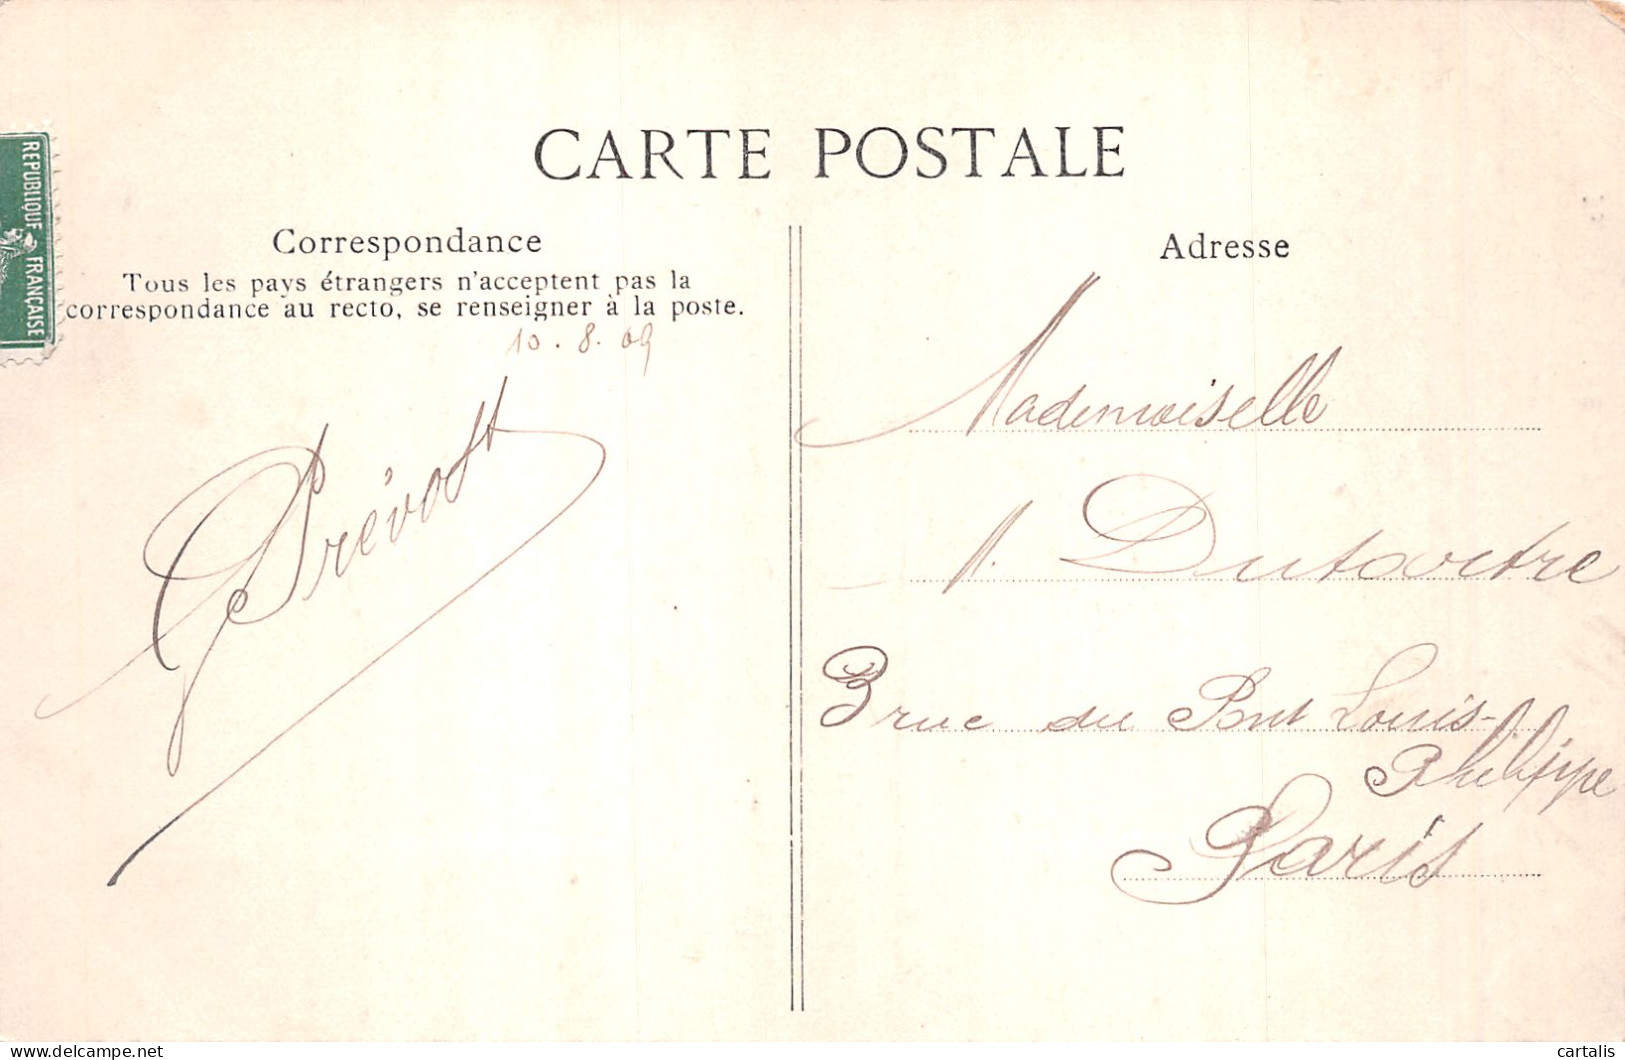 CARTE POSTALE
REPUBLIQUE FRANÇAISE
Correspondance
Tous les pays étrangers n'acceptent pas la
correspondance au recto, se renseigner à la poste.
10.8.09
Prévost
Adresse
Mademoiselle
M. Dutartre
3 rue du Pont Louis-
Philippe
Paris
delcampe.net
cartalis